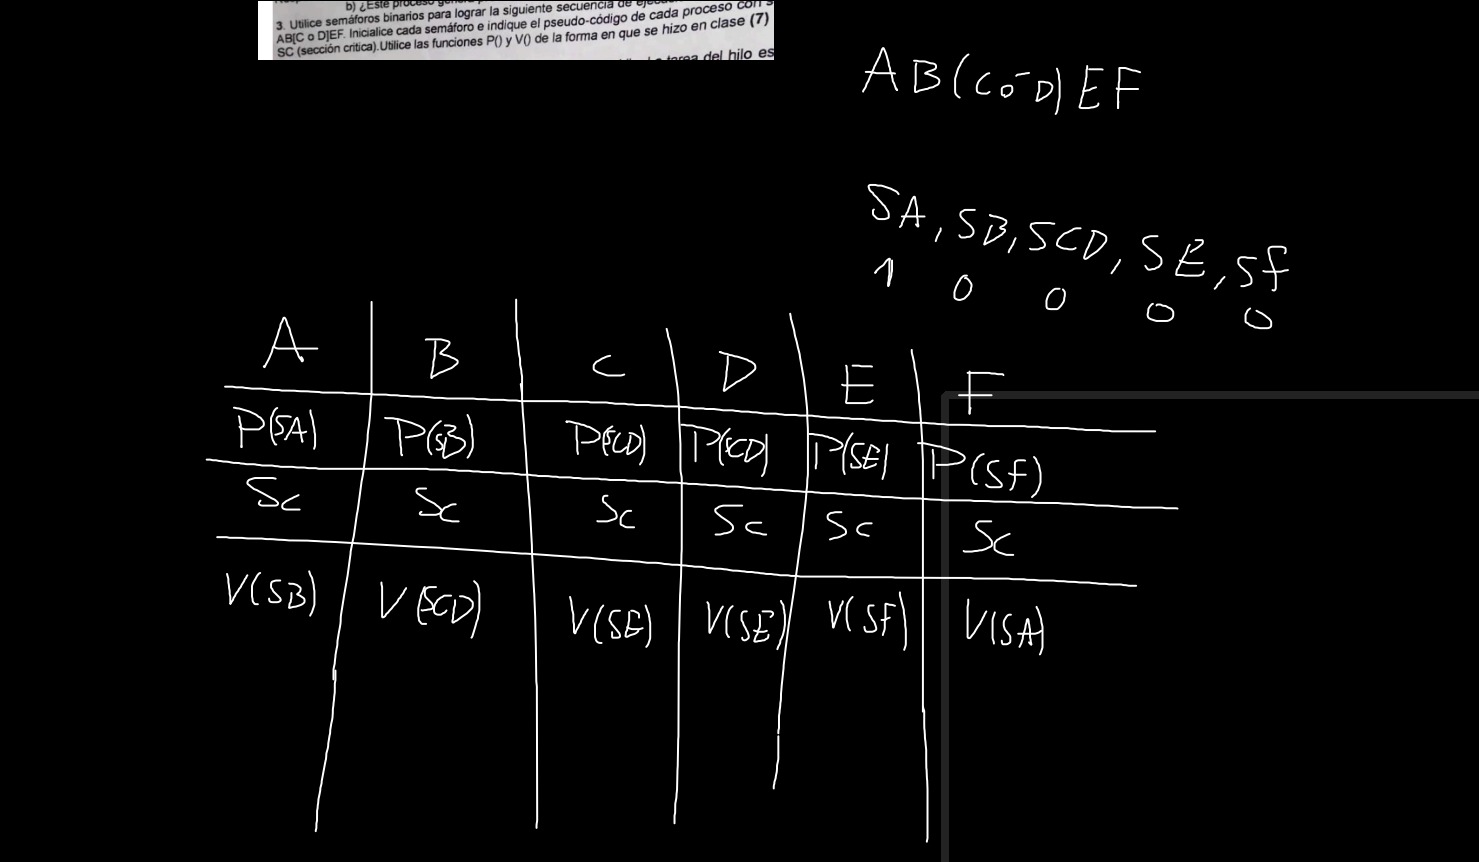 b) ¿Este proceso
3. Utilice semáforos binarios para lograr la siguiente secuencia de
AB[C o D]EF. Inicialice cada semáforo e indique el pseudo-código de cada proceso con
SC (sección critica).Utilice las funciones P() y V() de la forma en que se hizo en clase (7)
tarea del hilo es
AB(CóD)EF
SA, SB, SCD, SE, Sf
1 0 0 0 0
A B C D E F
P(SA) P(SB) P(SCD) P(SCD) P(SE) P(Sf)
Sc Sc Sc Sc Sc Sc
V(SB) V(SCD) V(SE) V(SE) V(SF) V(SA)